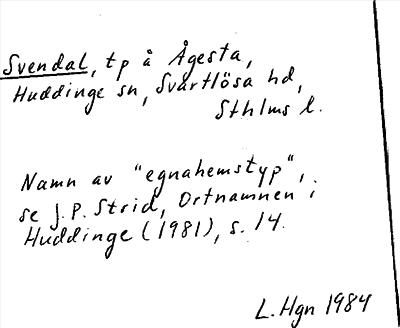 Svendal, tp å Ågesta,
Huddinge sn, Svartlösa hd,
Sthlms l.
Namn av "egnahemstyp",
se J.P. Strid, Ortnamnen i
Huddinge (1981), s. 14.
L. Hgn 1984